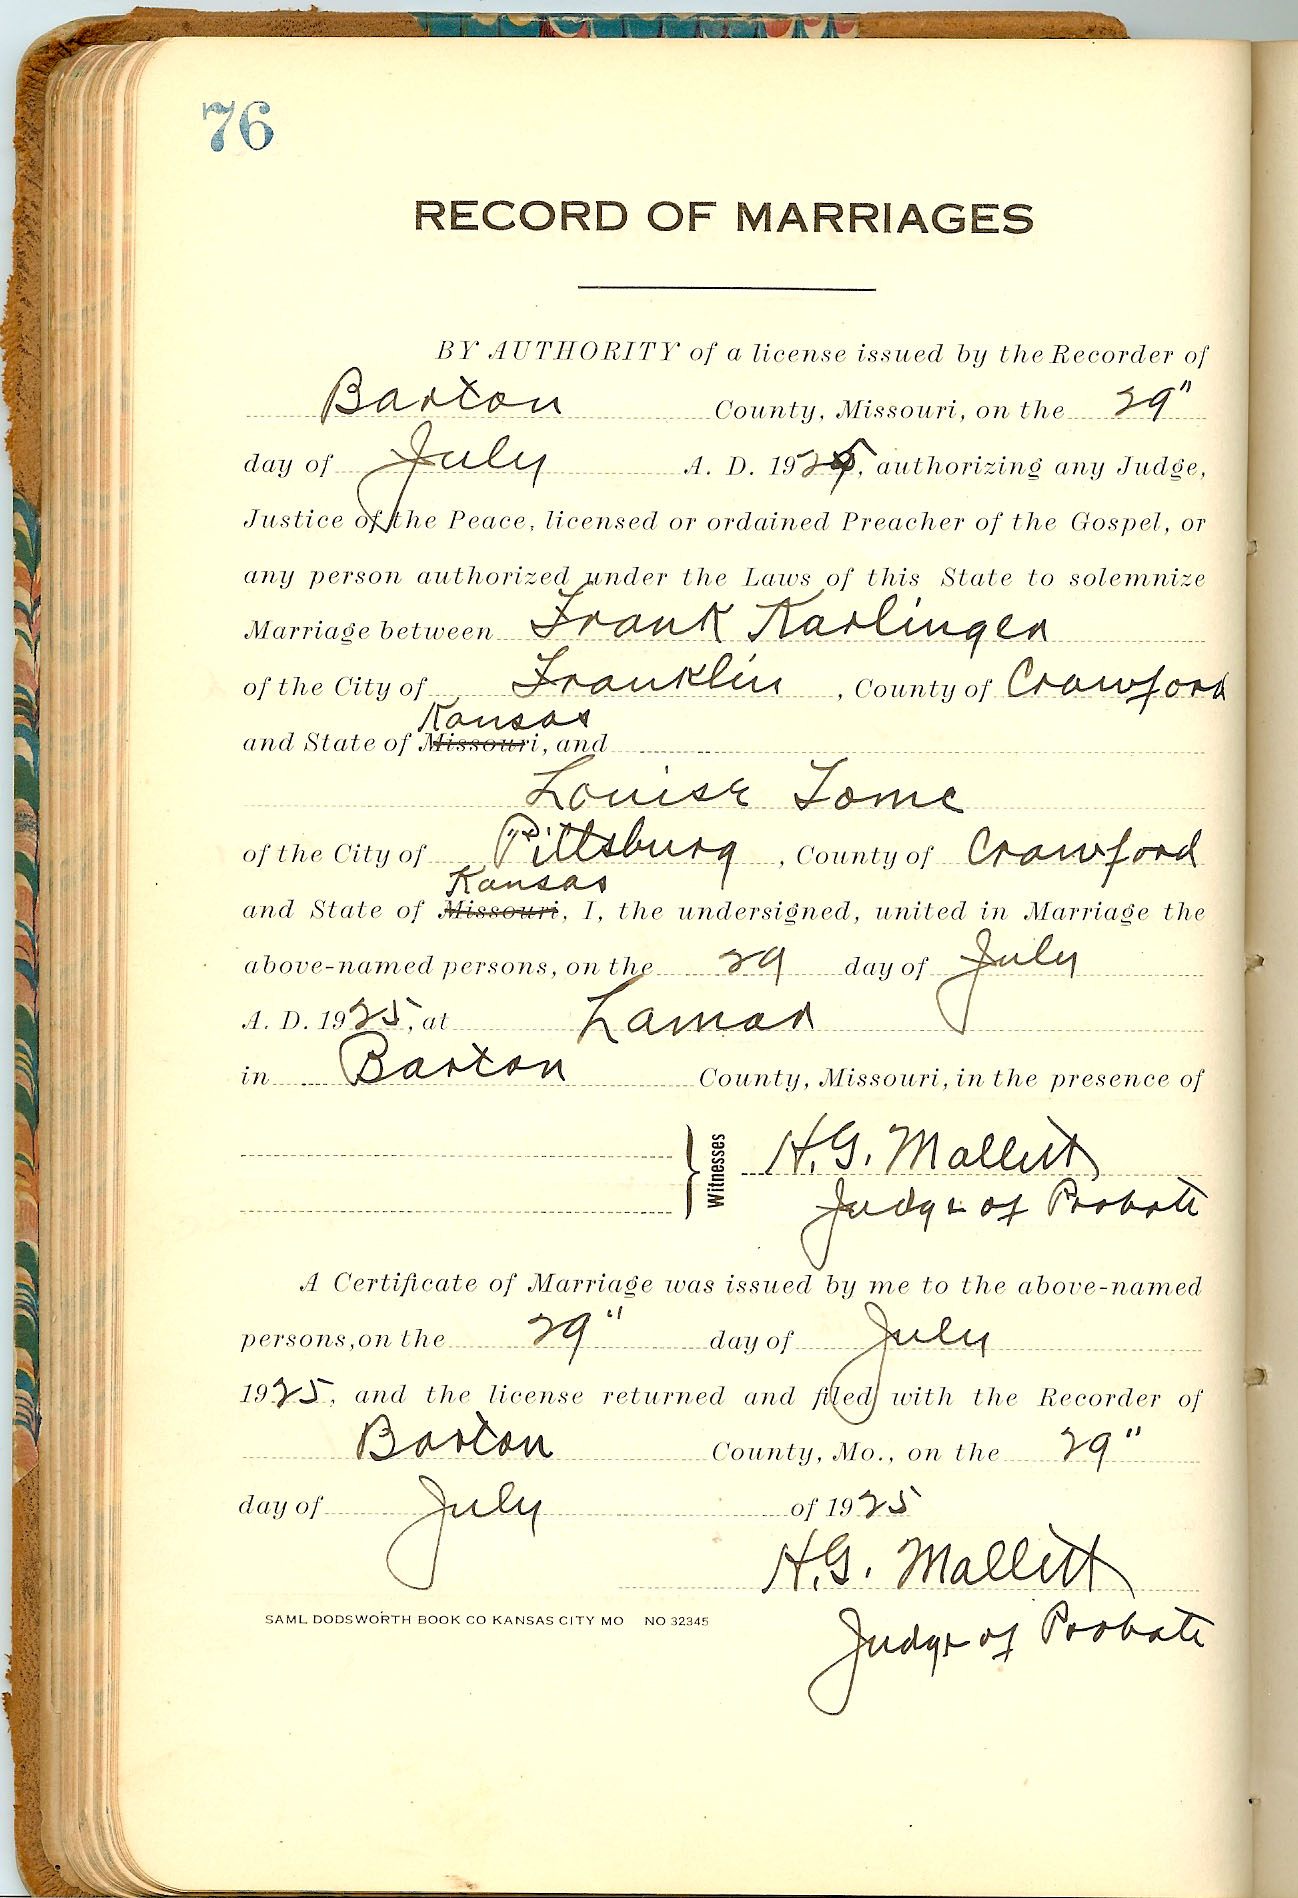 76
RECORD OF MARRIAGES
BY AUTHORITY of a license issued by the Recorder of
Barton County, Missouri, on the 29"
day of July A. D. 1925, authorizing any Judge,
Justice of the Peace, licensed or ordained Preacher of the Gospel, or
any person authorized under the Laws of this State to solemnize
Marriage between Frank Karlinger
of the City of Franklin, County of Crawford
Kansas
and State of Missouri, and
Louise Tome
of the City of Pittsburg, County of Crawford
Kansas
and State of Missouri, I, the undersigned, united in Marriage the
above-named persons, on the 29 day of July
A. D. 1925, at Lamar
in Barton County, Missouri, in the presence of
Witnesses H. G. Mallett
Judge of Probate
A Certificate of Marriage was issued by me to the above-named
persons, on the 29" day of July
1925, and the license returned and filed with the Recorder of
Barton County, Mo., on the 29"
day of July of 1925
H. G. Mallett
SAML DODSWORTH BOOK CO KANSAS CITY MO NO 32345
Judge of Probate